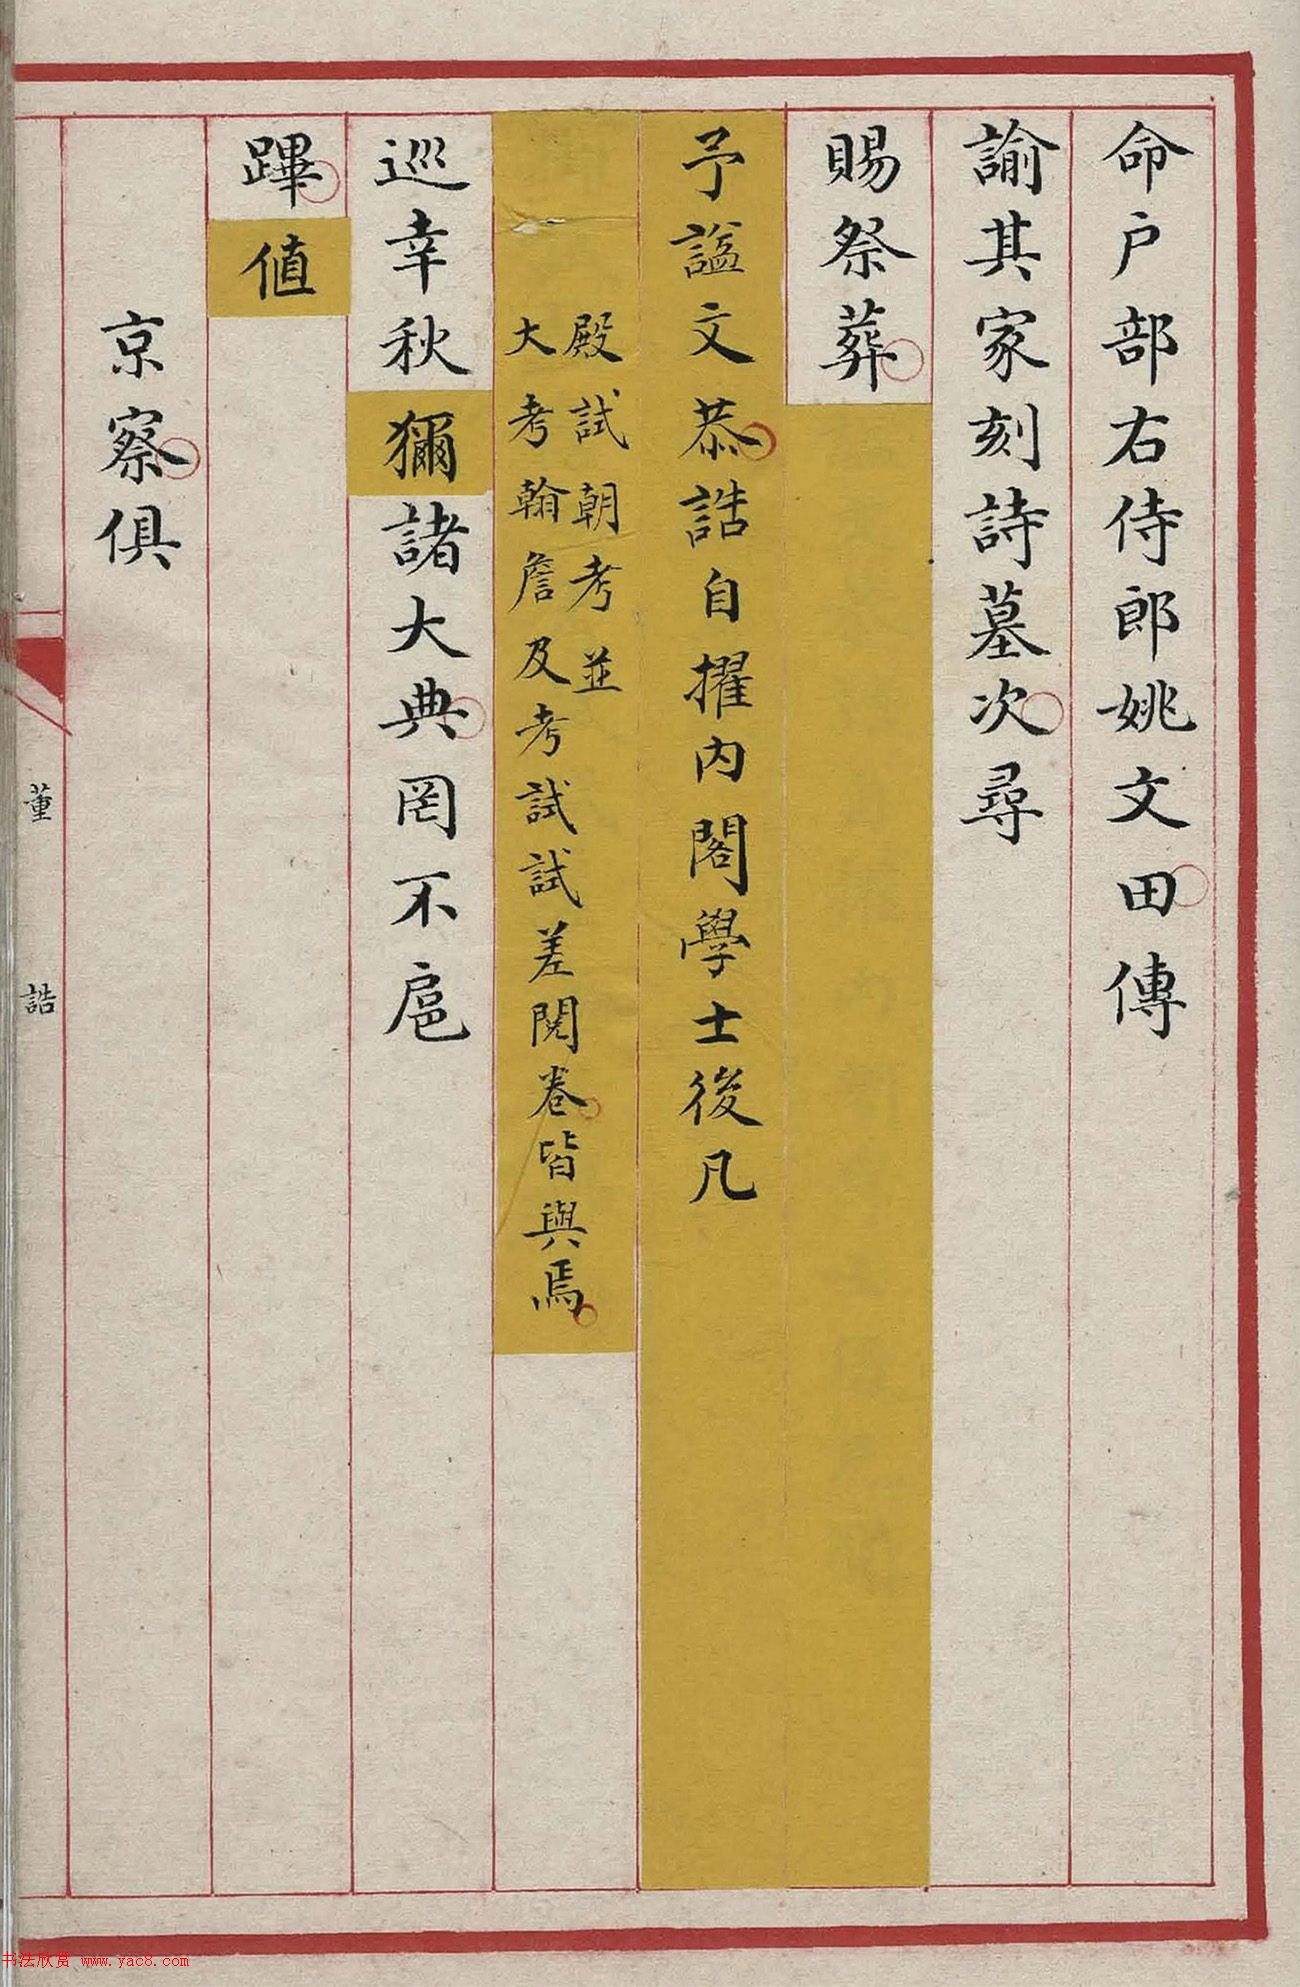 命户部右侍郎姚文田傳
諭其家刻詩墓次尋
賜祭葬
予諡文恭誥自擢内閣學士後凡
殿試朝考並
大考翰詹及考試試差閱卷皆與焉
巡幸秋獮諸大典罔不扈
蹕值
京察俱
董 誥
书法欣赏 www.yac8.com